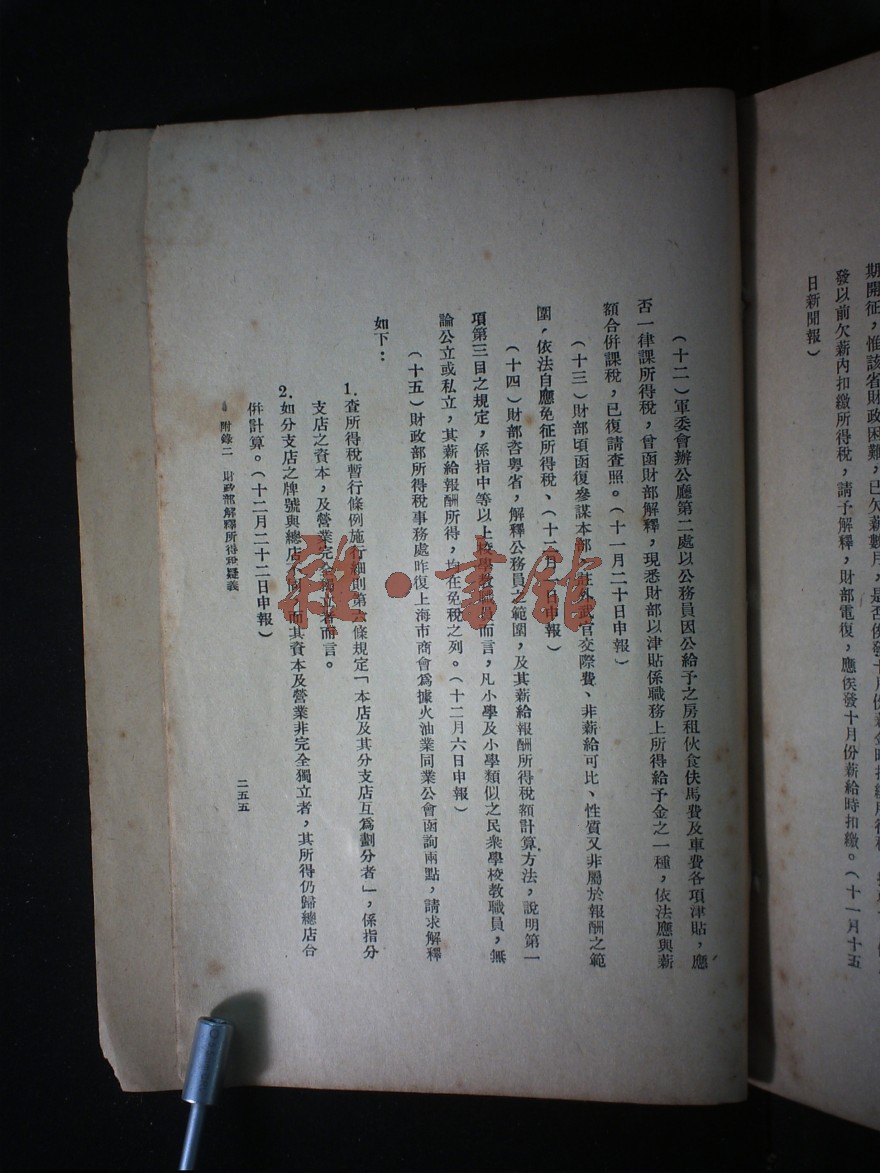 期開征，惟該省財政困難，已欠薪數月，是否俟發十月份薪金時扣繳所得稅
發以前欠薪內扣繳所得稅，請予解釋，財部電復，應俟發十月份薪給時扣繳。（十一月十五
日新聞報）
（十二）軍委會辦公廳第二處以公務員因公給予之房租伙食伕馬費及車費各項津貼，應
否一律課所得稅，曾函財部解釋，現悉財部以津貼係職務上所得給予金之一種，依法應與薪
額合併課稅，已復請查照。（十一月二十日申報）
（十三）財部頃函復參謀本部，駐外武官交際費、非薪給可比、性質又非屬於報酬之範
圍，依法自應免征所得稅、（十二月 日申報）
（十四）財部咨粵省，解釋公務員之範圍，及其薪給報酬所得稅額計算方法，說明第一
項第三目之規定，係指中等以上學校教職員而言，凡小學及小學類似之民衆學校教職員，無
論公立或私立，其薪給報酬所得，均在免稅之列。（十二月六日申報）
（十五）財政部所得稅事務處昨復上海市商會爲據火油業同業公會函詢兩點，請求解釋
如下：
1.查所得稅暫行條例施行細則第六條規定「本店及其分支店互爲劃分者」，係指分
支店之資本，及營業完全獨立者而言。
2.如分支店之牌號與總店 同，而其資本及營業非完全獨立者，其所得仍歸總店合
併計算。（十二月二十二日申報）
附錄二 財政部解釋所得稅疑義
二五五
雜·書館